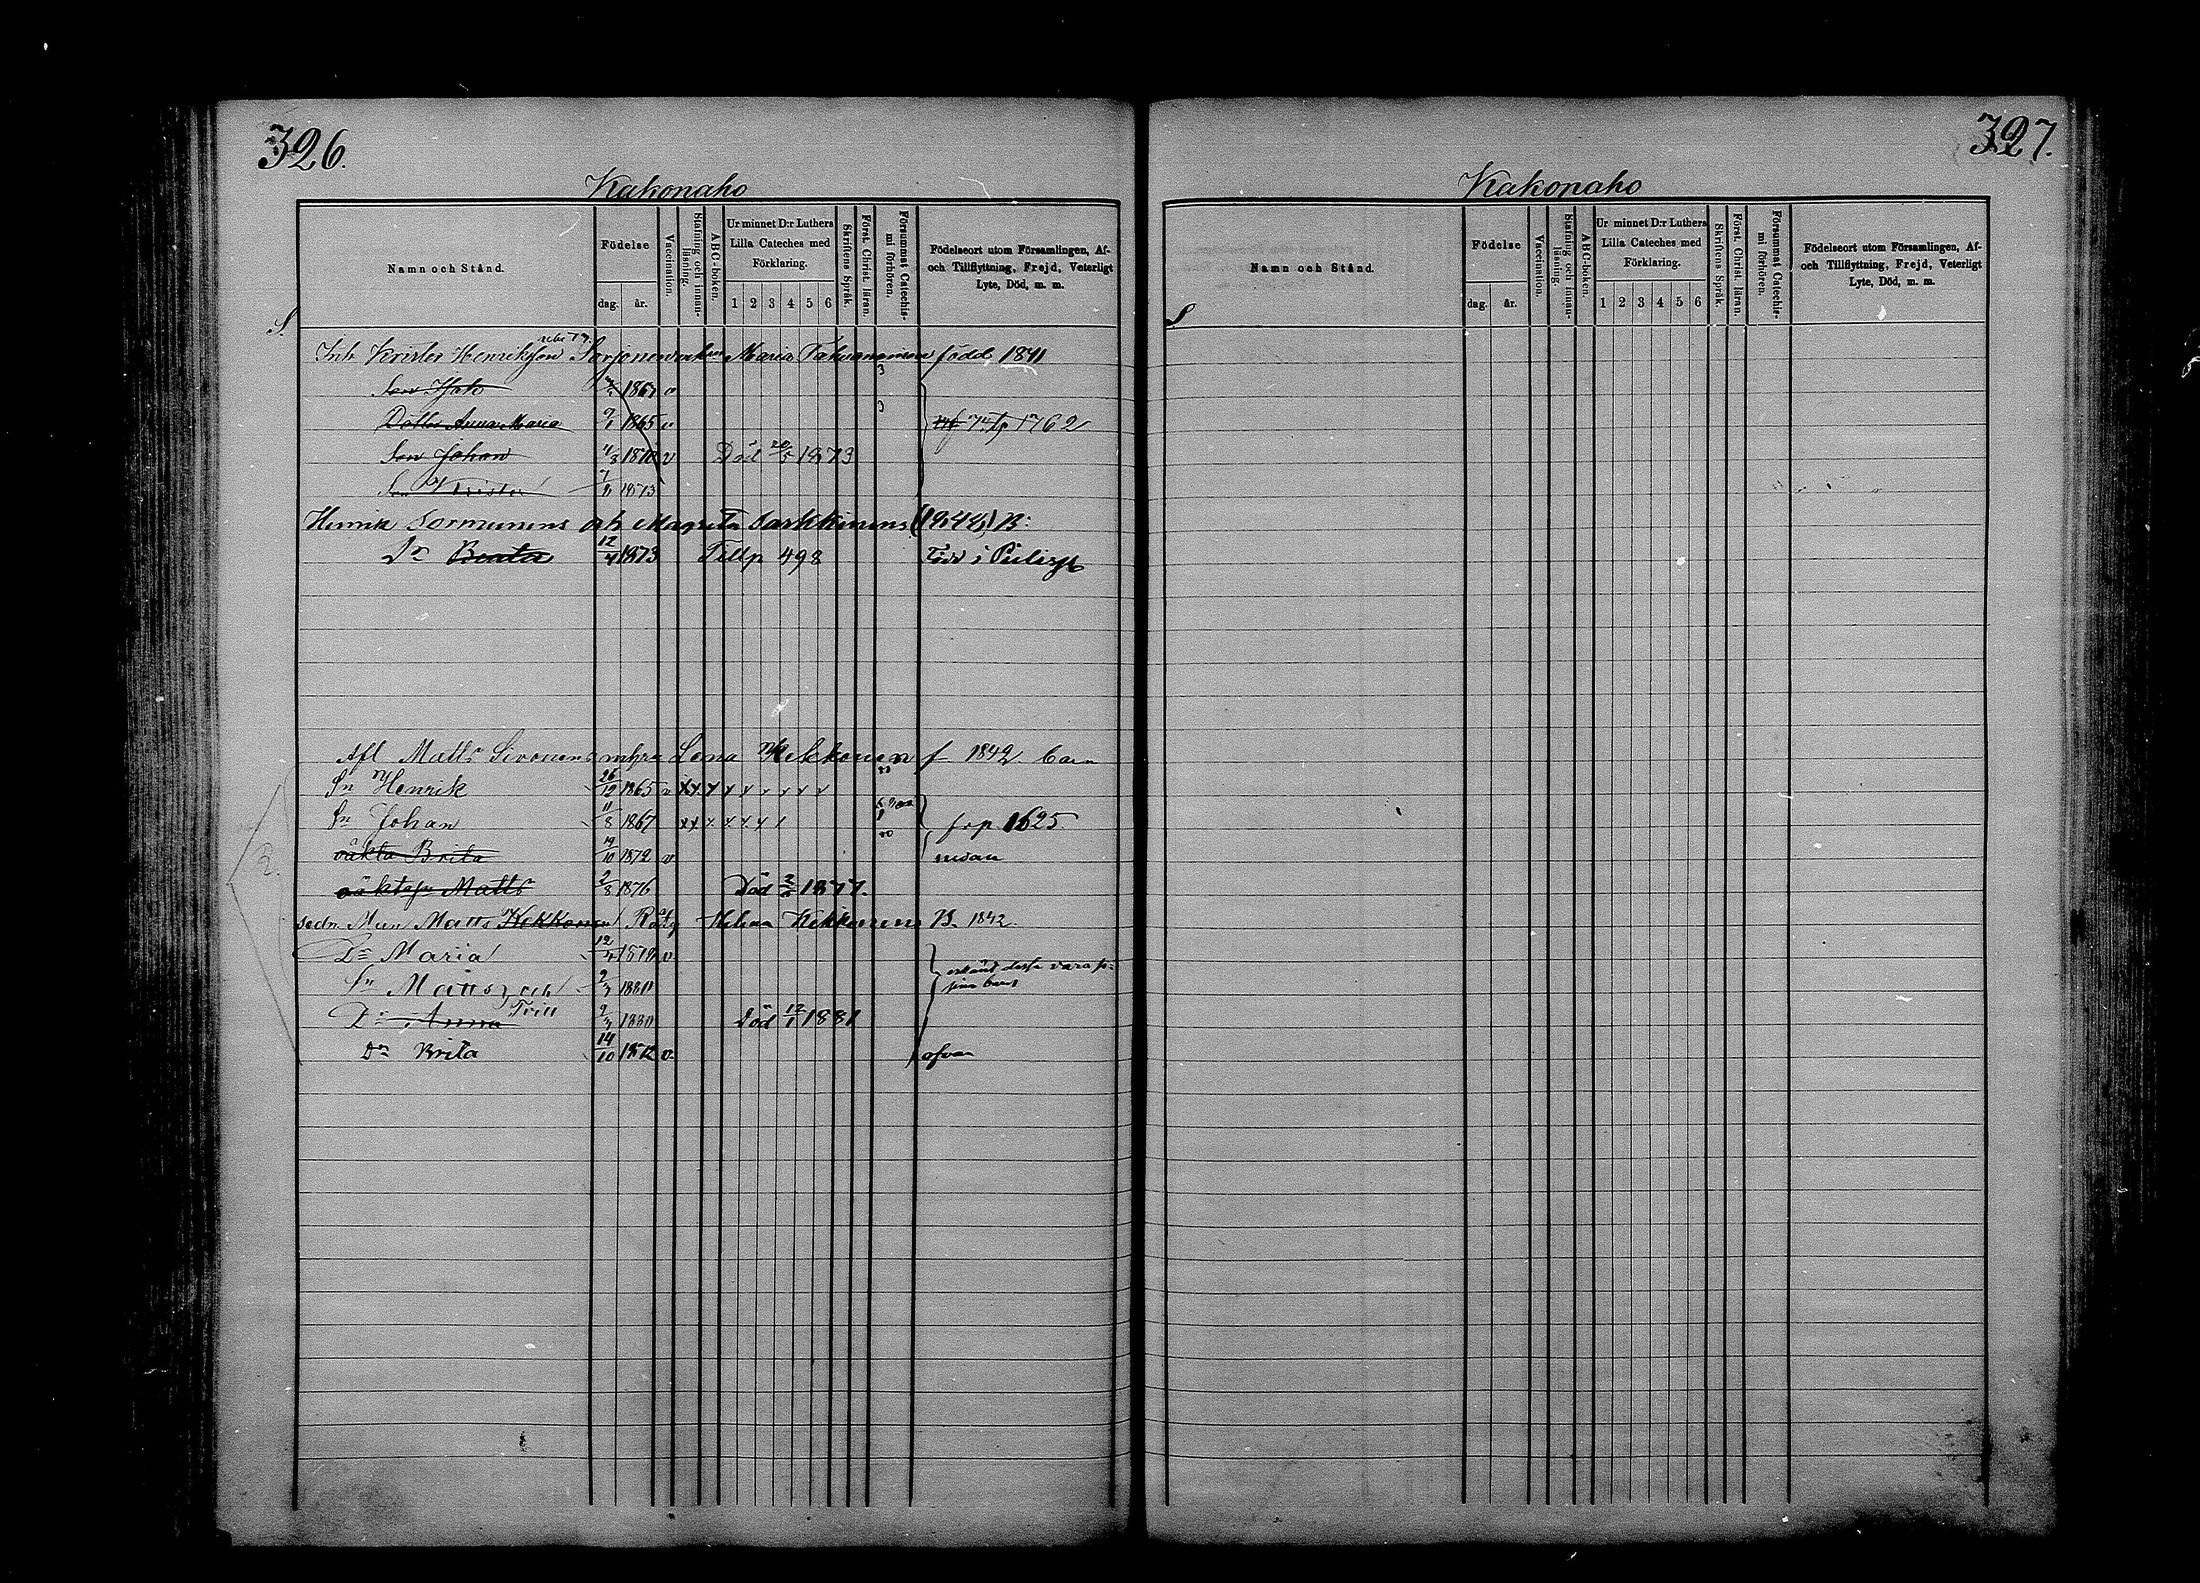 326.
Kakonaho
Namn och Stånd.
Födelse
dag. år.
Vaccination.
Stafning och innanläsning.
ABC-boken.
Ur minnet D:r Luthers
Lilla Cateches med
Förklaring.
1 2 3 4 5 6
Skriftens Språk.
Först. Christ. läran.
Försummat Catechismi förhören.
Födelseort utom Församlingen, Af-
och Tillflyttning, Frejd, Veterligt
Lyte, Död, m. m.
Inh Krister Henriksson Sorjonen Maria född 1841
Son 1861 v
Dotter Anna Maria 1865 v 1762
Son Johan 11/3 1870 v Död 1873
Son Krister 1873
Henrik Sormunens och Magreta Sarkkinens (1944) B:
Dr Beata 12/4 1873 Till p 498 Född i
Afl Matts Sivonens enka Lena Kekkonen f 1842 barn
Sn Henrik 26/12 1865 v x x x x x x x x x
Sn Johan 11/8 1867 x x x x x x x fr p 1625
oäkta Brita 14/10 1872 v nedan
oäkta sn Matts 2/8 1876 Död 1877.
Matts Kekkonen Helena Kekkonens B. 1842.
Dr Maria 12/4 v
Sn Matts och 2/3 1880 erkänt dessa vara
sina barn
Dr Anna 2/3 1880 Död 12/1 1881
Dr Brita 14/10 1872 v. ofvan
327.
Kakonaho
Namn och Stånd.
Födelse
dag. år.
Vaccination.
Stafning och innanläsning.
ABC-boken.
Ur minnet D:r Luthers
Lilla Cateches med
Förklaring.
1 2 3 4 5 6
Skriftens Språk.
Först. Christ. läran.
Försummat Catechismi förhören.
Födelseort utom Församlingen, Af-
och Tillflyttning, Frejd, Veterligt
Lyte, Död, m. m.